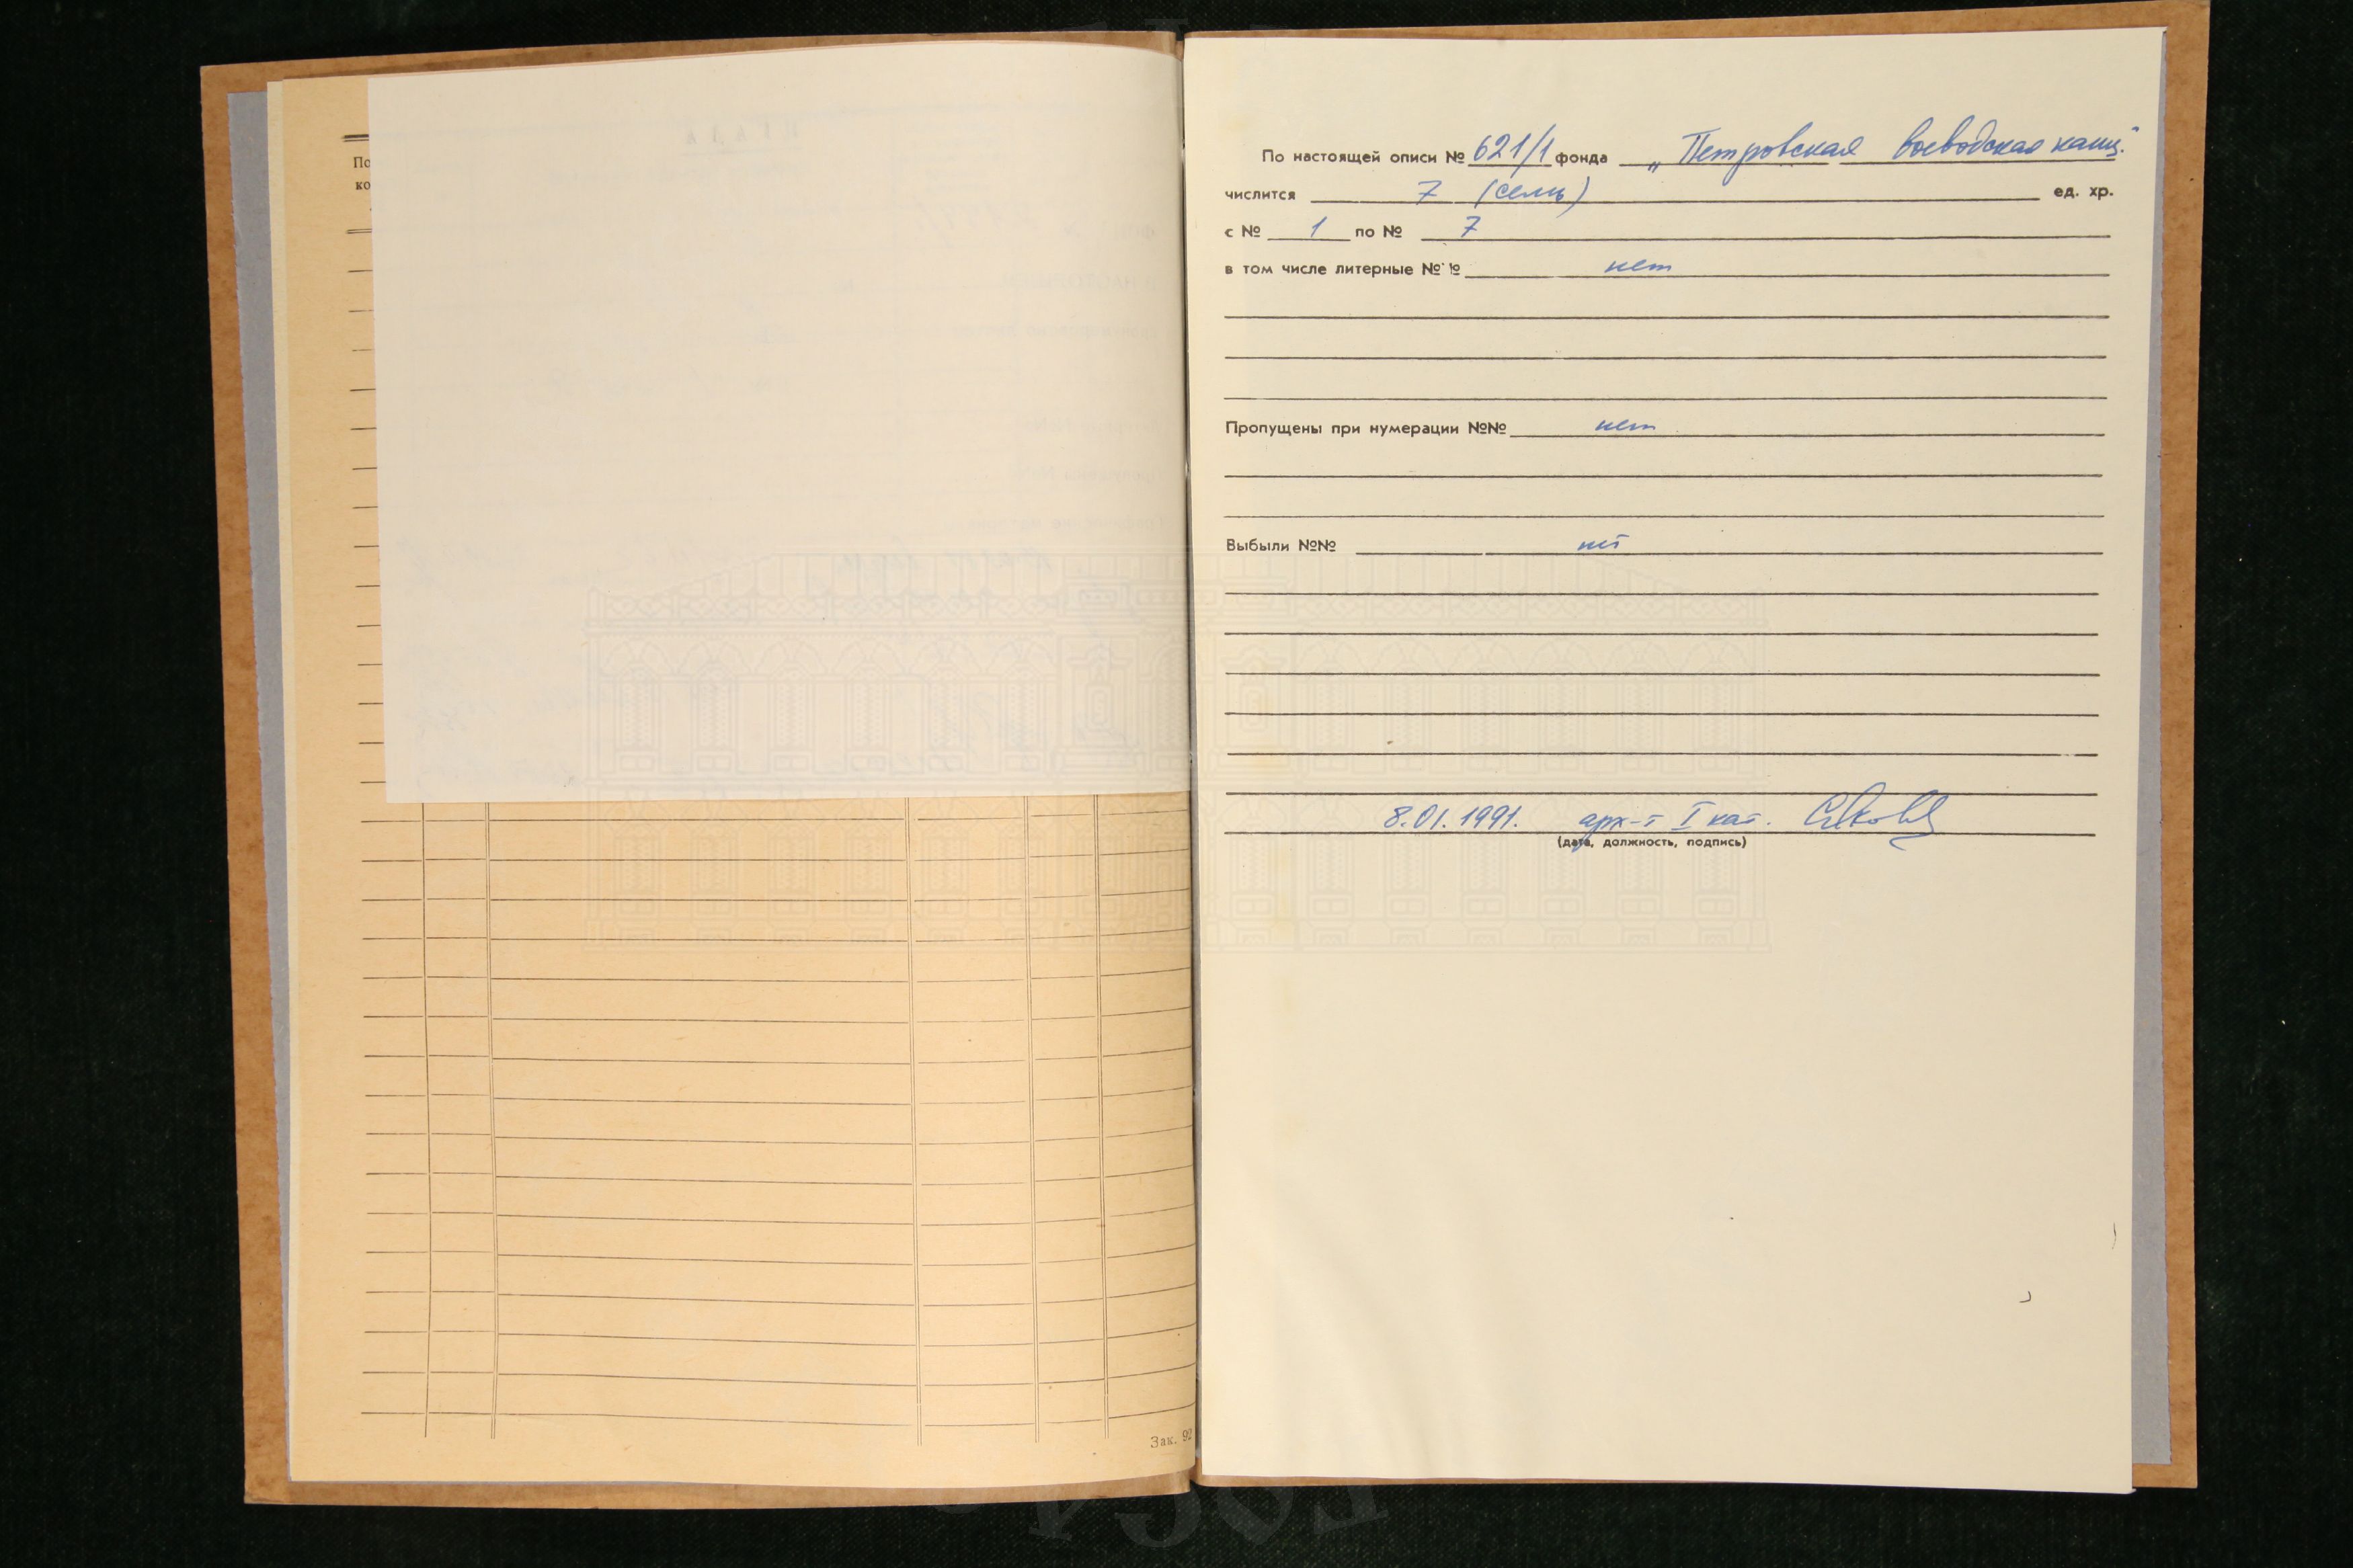 По
ко
Зак. 92
По настоящей описи № 621/1 фонда „Петровская воеводская канц."
числится 7 (семь) ед. хр.
с № 1 по № 7
в том числе литерные №№ нет
Пропущены при нумерации №№ нет
Выбыли №№ нет
8.01.1991. арх-т I кат.
(дата, должность, подпись)